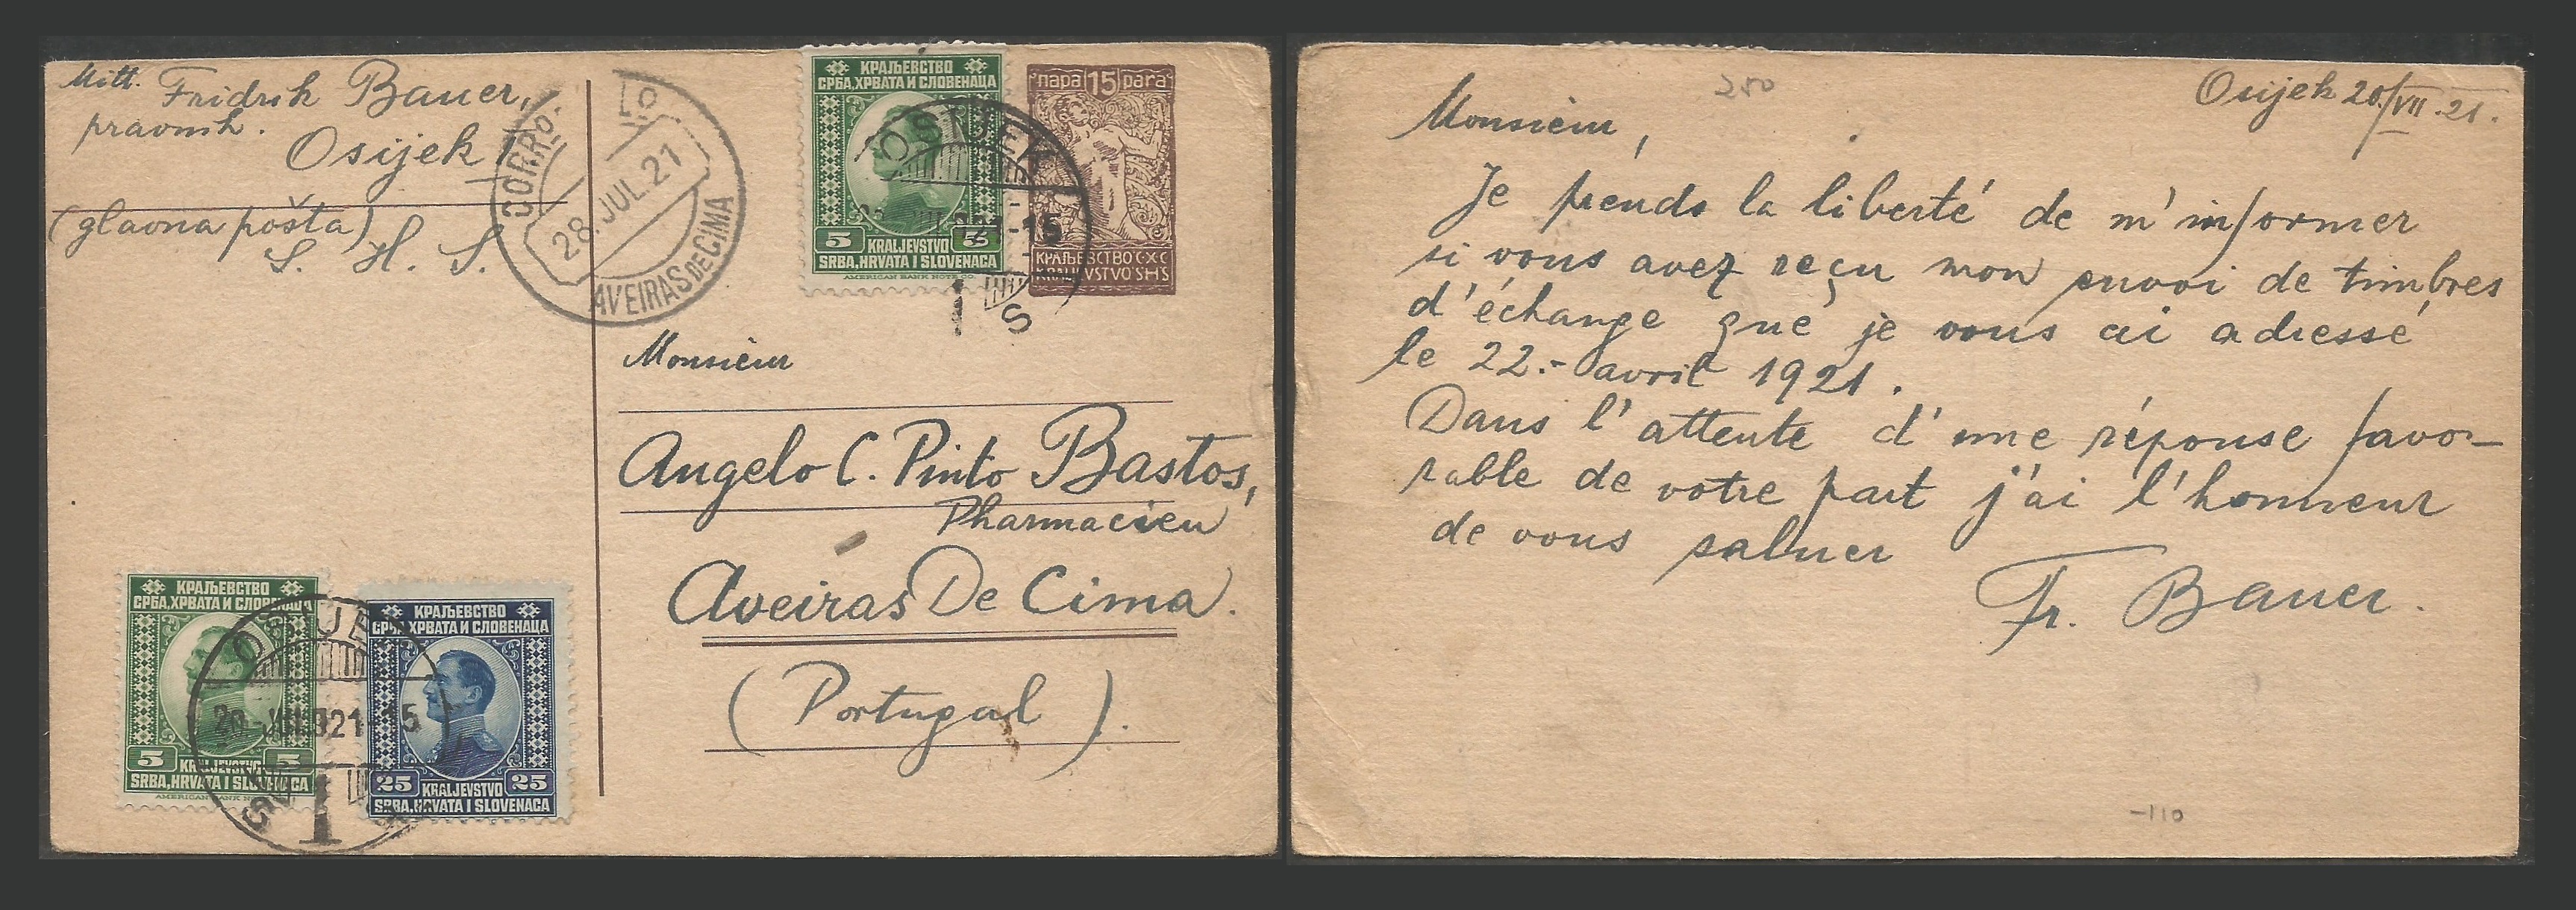 Mitt. Fridrik Bauer,
pravnik.
Osijek I
(glavna pošta)
S. H. S.
CORRO. TO
28. JUL. 21
AVEIRAS DE CIMA
КРАЉЕВСТВО
СРБА, ХРВАТА И СЛОВЕНАЦА
5 KRALJEVSTVO 5
SRBA, HRVATA I SLOVENACA
AMERICAN BANK NOTE CO.
пара 15 para
КРАЉЕВСТВО С·Х·С
KRALJEVSTVO S·H·S
OSIJEK
Monsieur
Angelo C. Pinto Bastos,
Pharmacien
Aveiras De Cima.
(Portugal).
КРАЉЕВСТВО
СРБА, ХРВАТА И СЛОВЕНАЦА
5 KRALJEVSTVO 5
SRBA, HRVATA I SLOVENACA
AMERICAN BANK N
КРАЉЕВСТВО
СРБА, ХРВАТА И СЛОВЕНАЦА
25 KRALJEVSTVO 25
SRBA, HRVATA I SLOVENACA
OSIJEK
20 JUL 921-15
1
250
Osijek 20/VII.21.
Monsieur,
Je prends la liberté de m'informer
si vous avez reçu mon envoi de timbres
d'échange que je vous ai adressé
le 22.- avril 1921.
Dans l'attente d'une réponse favo-
rable de votre part j'ai l'honneur
de vous saluer
Fr. Bauer.
-110